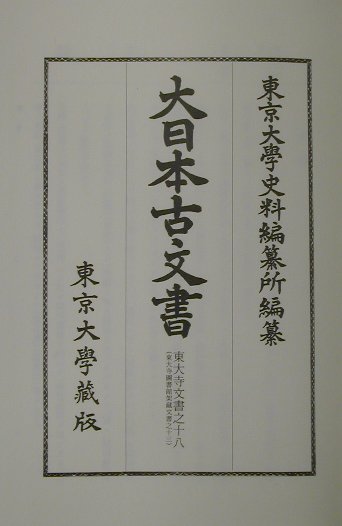 東京大學史料編纂所編纂
大日本古文書
東大寺文書之十八
(東大寺圖書館架藏文書之十三)
東京大學藏版